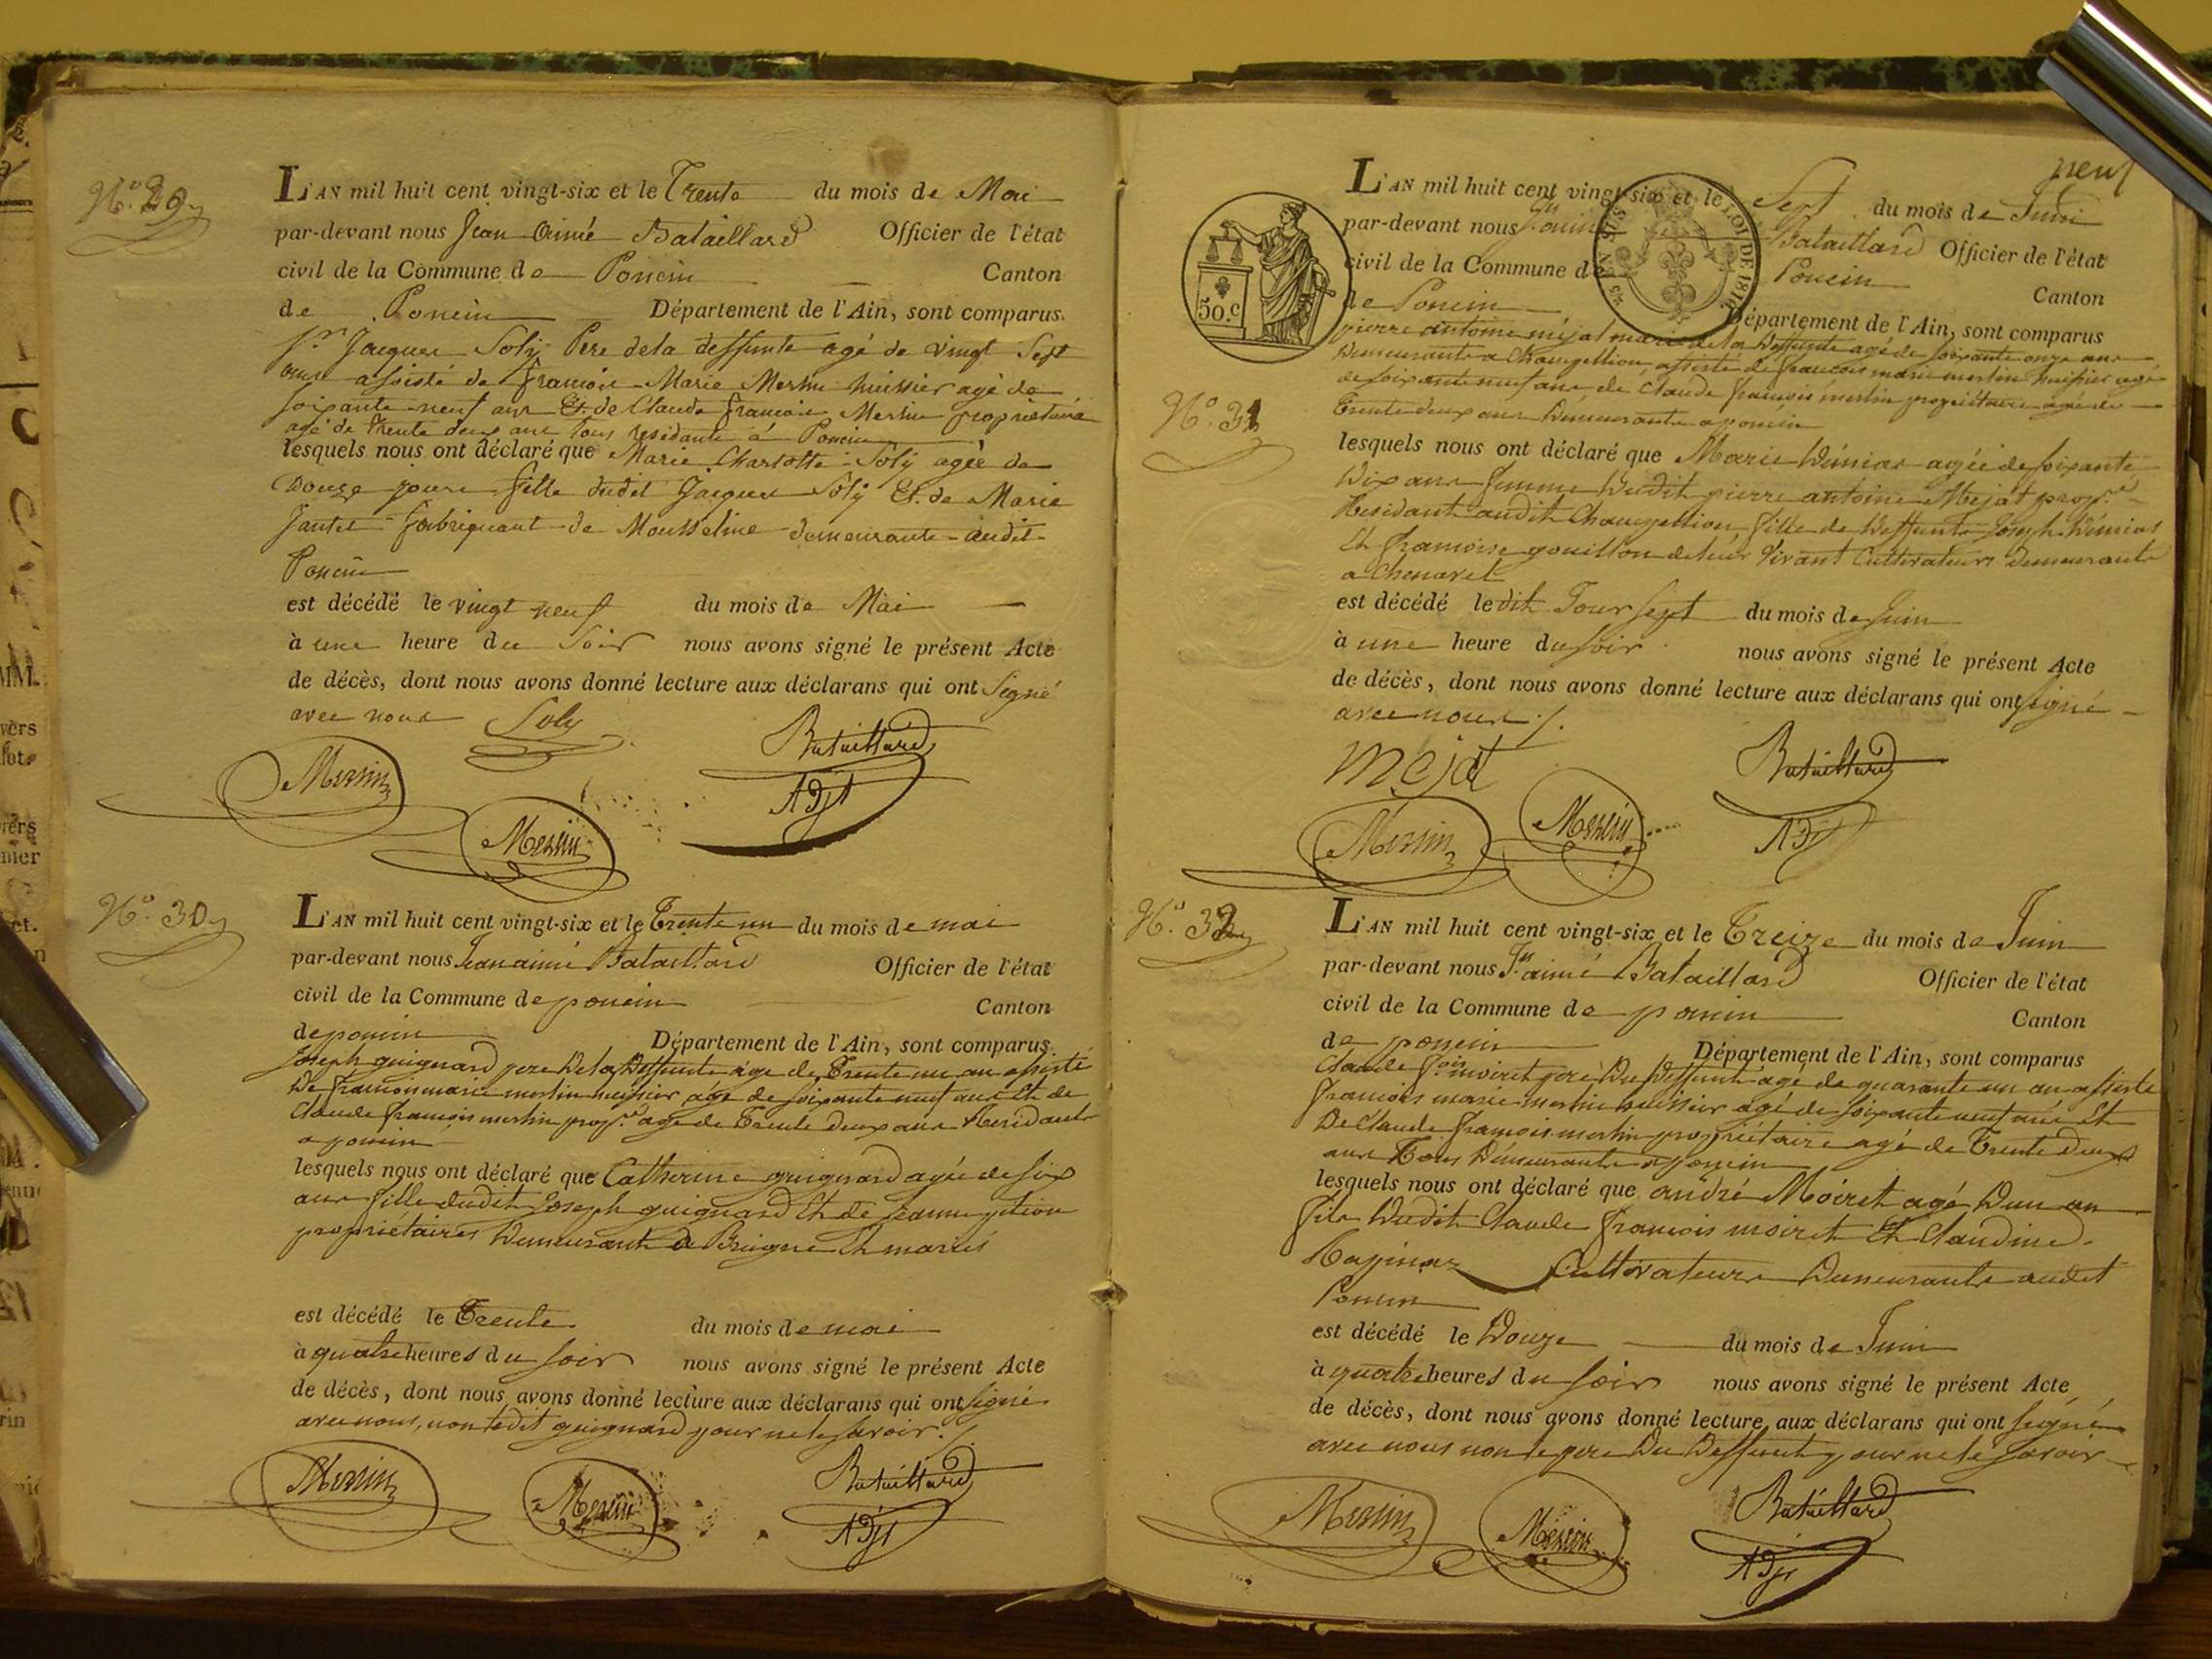 N.° 29
L'AN mil huit cent vingt-six et le Trente du mois de Mai
par-devant nous Jean Aimé Bataillard Officier de l'état
civil de la Commune de Poncin Canton
de Poncin Département de l'Ain, sont comparus
Jacques Soly Pere dela deffunte agé de vingt Sept
ans assisté de francois Marie Mersin huissier agé de
soixante neuf ans Et de Claude francois Mersin propriétaire
agé de trente deux ans tous residants à Poncin
lesquels nous ont déclaré que Marie Charlotte Soly agée de
Douze jours fille dudit Jacques Soly Et de Marie
Jantet fabriquant de Mousseline demeurants audit
Poncin
est décédé le vingt neuf du mois de Mai
à une heure du Soir nous avons signé le présent Acte
de décès, dont nous avons donné lecture aux déclarans qui ont Signé
avec nous Soly
Bataillard
Mersin
Adjt
Mersin
N.° 30
L'AN mil huit cent vingt-six et le Trente un du mois de mai
par-devant nous Jean aimé Bataillard Officier de l'état
civil de la Commune de poncin Canton
de poncin Département de l'Ain, sont comparus
Joseph guignard pere De la Deffunte âgé de Trente un an assisté
De francois marie mersin huissier âgé de soixante neuf ans Et de
Claude francois mersin prop.re agé de Trente Deux ans Residants
a poncin
lesquels nous ont déclaré que Catherine guignard agée de six
ans fille dudit Joseph guignard Et de Jeanne
propriétaires Demeurant a Et mariés
est décédé le Trente du mois de mai
à quatre heures du soir nous avons signé le présent Acte
de décès, dont nous avons donné lecture aux déclarans qui ont signé
avec nous, non ledit guignard pour ne le savoir ./.
Mersin
Mersin
Bataillard
Adjt
neuf
50.C
LOI DE 1816
L'AN mil huit cent vingt-six et le Sept du mois de Juin
par-devant nous Jn aimé Bataillard Officier de l'état
civil de la Commune de Poncin Canton
de Poncin Département de l'Ain, sont comparus
pierre antoine méjat mari de la Deffunte agé de soixante onze ans
Demeurant a assisté de francois marie mersin huissier agé
de soixante neuf ans, de Claude francois mersin propriétaire agé de
Trente deux ans Demeurants a poncin
N.° 31
lesquels nous ont déclaré que Marie agée de soixante
Dix ans femme Dudit pierre antoine Mejat prop.re
Residant audit fille de Deffunts Joseph
Et francoise gouillon de leur vivant Cultivateurs Demeurants
a Chenavel
est décédé le dit Jour sept du mois de Juin
à une heure du soir nous avons signé le présent Acte
de décès, dont nous avons donné lecture aux déclarans qui ont signé
avec nous ./.
mejat
Bataillard
Mersin
Mersin
Adjt
N.° 32
L'AN mil huit cent vingt-six et le Treize du mois de Juin
par-devant nous Jn aimé Bataillard Officier de l'état
civil de la Commune de poncin Canton
de poncin Département de l'Ain, sont comparus
Claude f.ois moiret pere Du Deffunt agé de quarante un an assisté
francois marie mersin huissier agé de soixante neuf ans Et
De Claude francois mersin propriétaire agé de Trente Deux
ans Tous Demeurants a poncin
lesquels nous ont déclaré que andré Moiret agé Dun an
fils Dudit Claude francois moiret Et Claudine
Cultivateurs Demeurants audit
Poncin
est décédé le Douze du mois de Juin
à quatre heures du soir nous avons signé le présent Acte
de décès, dont nous avons donné lecture aux déclarans qui ont signé
avec nous non le pere Du Deffunt pour ne le savoir
Mersin
Mersin
Bataillard
Adjt